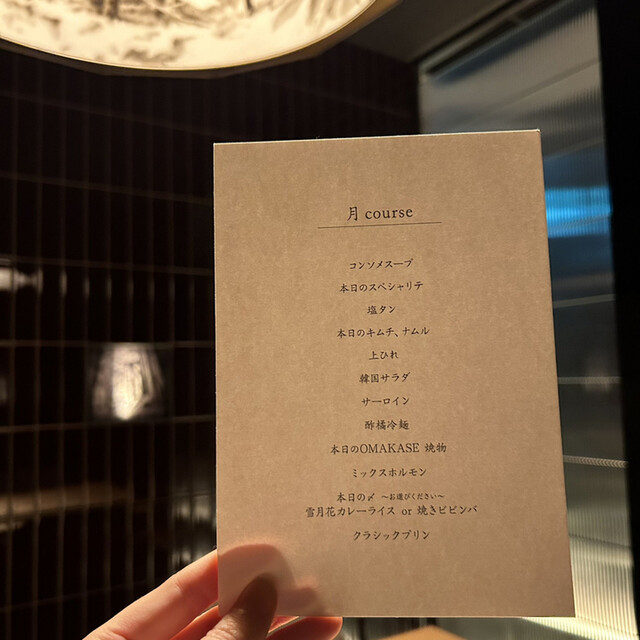 月 course
コンソメスープ
本日のスペシャリテ
塩タン
本日のキムチ、ナムル
上ひれ
韓国サラダ
サーロイン
酢橘冷麺
本日のOMAKASE 焼物
ミックスホルモン
本日の〆 〜お選びください〜
雪月花カレーライス or 焼きビビンバ
クラシックプリン